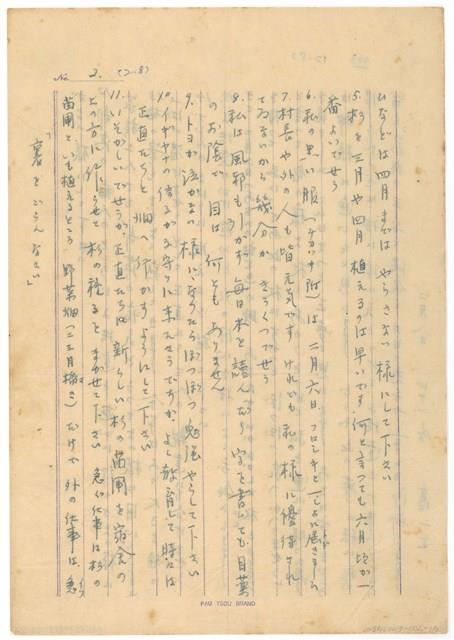 No 2. (2.8)
ひなどは四月までは やらさない様にして下さい
5.杉を三月や四月 植えるのは早いです.何と言っても六月頃が一
番よいでせう
6.私の黒い服 は二月六日 フロシキと一しょに届きました
7.村長や外の人も皆元気です けれども私の様に優待され
てゐないから 幾分か きうくつでせう
8.私は風邪も引かず 毎日本を読んだり 字を書いても目薬
のお陰で 目は何ともありません
9.トヨが泣かない様に、ならたらぼつぼつ勉強やらして下さい
10.イギヤナの倅が子守りに来たさうですが、よく教育して時々は
正直たちと 畑へ行かすようにして下さい
11.いそがしいでせうが正直たちは 新らしい杉の苗圃を宿舎の
上の方に作らせて 杉の種を まかせて下さい 急ぐ仕事は杉の
苗圃と、いも植えるところ 野菜畑(二三月播き)だけで 外の仕事は、急
「裏をごらんなさい」
PAM TSOU BRAND